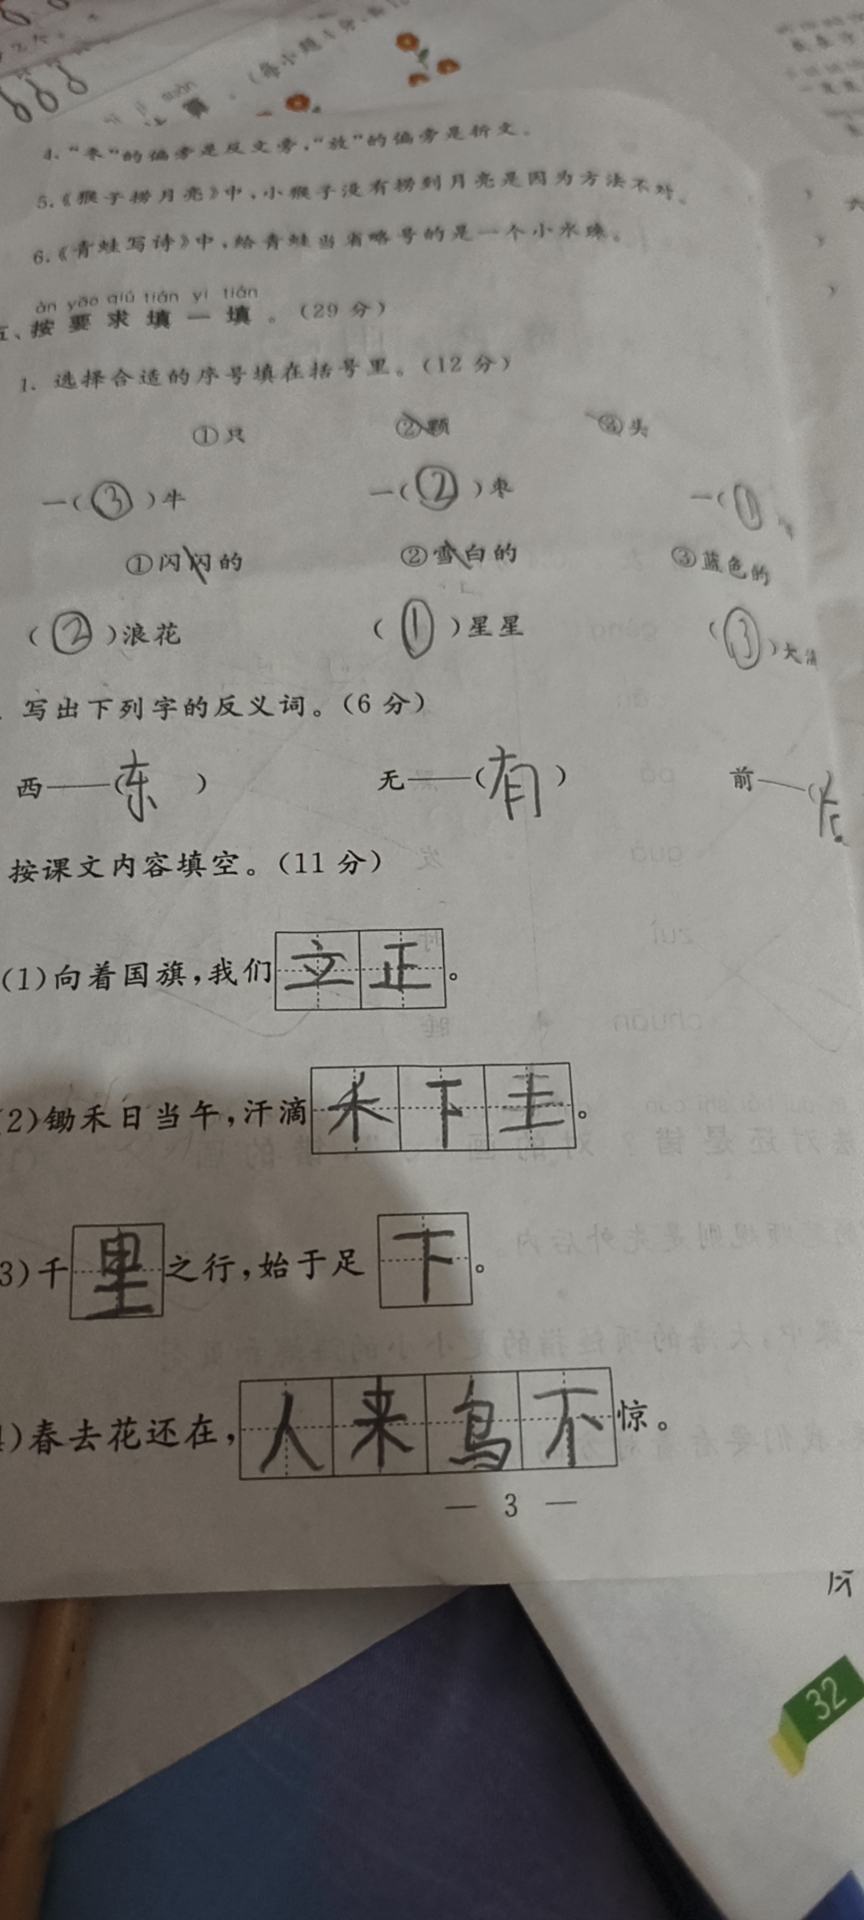 (每小题1分,
4.“来”的偏旁是反文旁,“放”的偏旁是折文。
5.《猴子捞月亮》中,小猴子没有捞到月亮是因为方法不对。
6.《青蛙写诗》中,给青蛙当省略号的是一个小水珠。
àn yāo qiú tián yi tián
五、按要求填一填。(29分)
1. 选择合适的序号填在括号里。(12分)
①只 ②颗 ③头
一(③)牛 一(②)枣 一(①
①闪闪的 ②雪白的 ③蓝色的
(②)浪花 (①)星星 (③)大海
写出下列字的反义词。(6分)
西——(东) 无——(有) 前——(后
按课文内容填空。(11分)
(1)向着国旗,我们立正。
(2)锄禾日当午,汗滴禾下土。
3)千里之行,始于足下。
)春去花还在,人来鸟不惊。
— 3 —
32